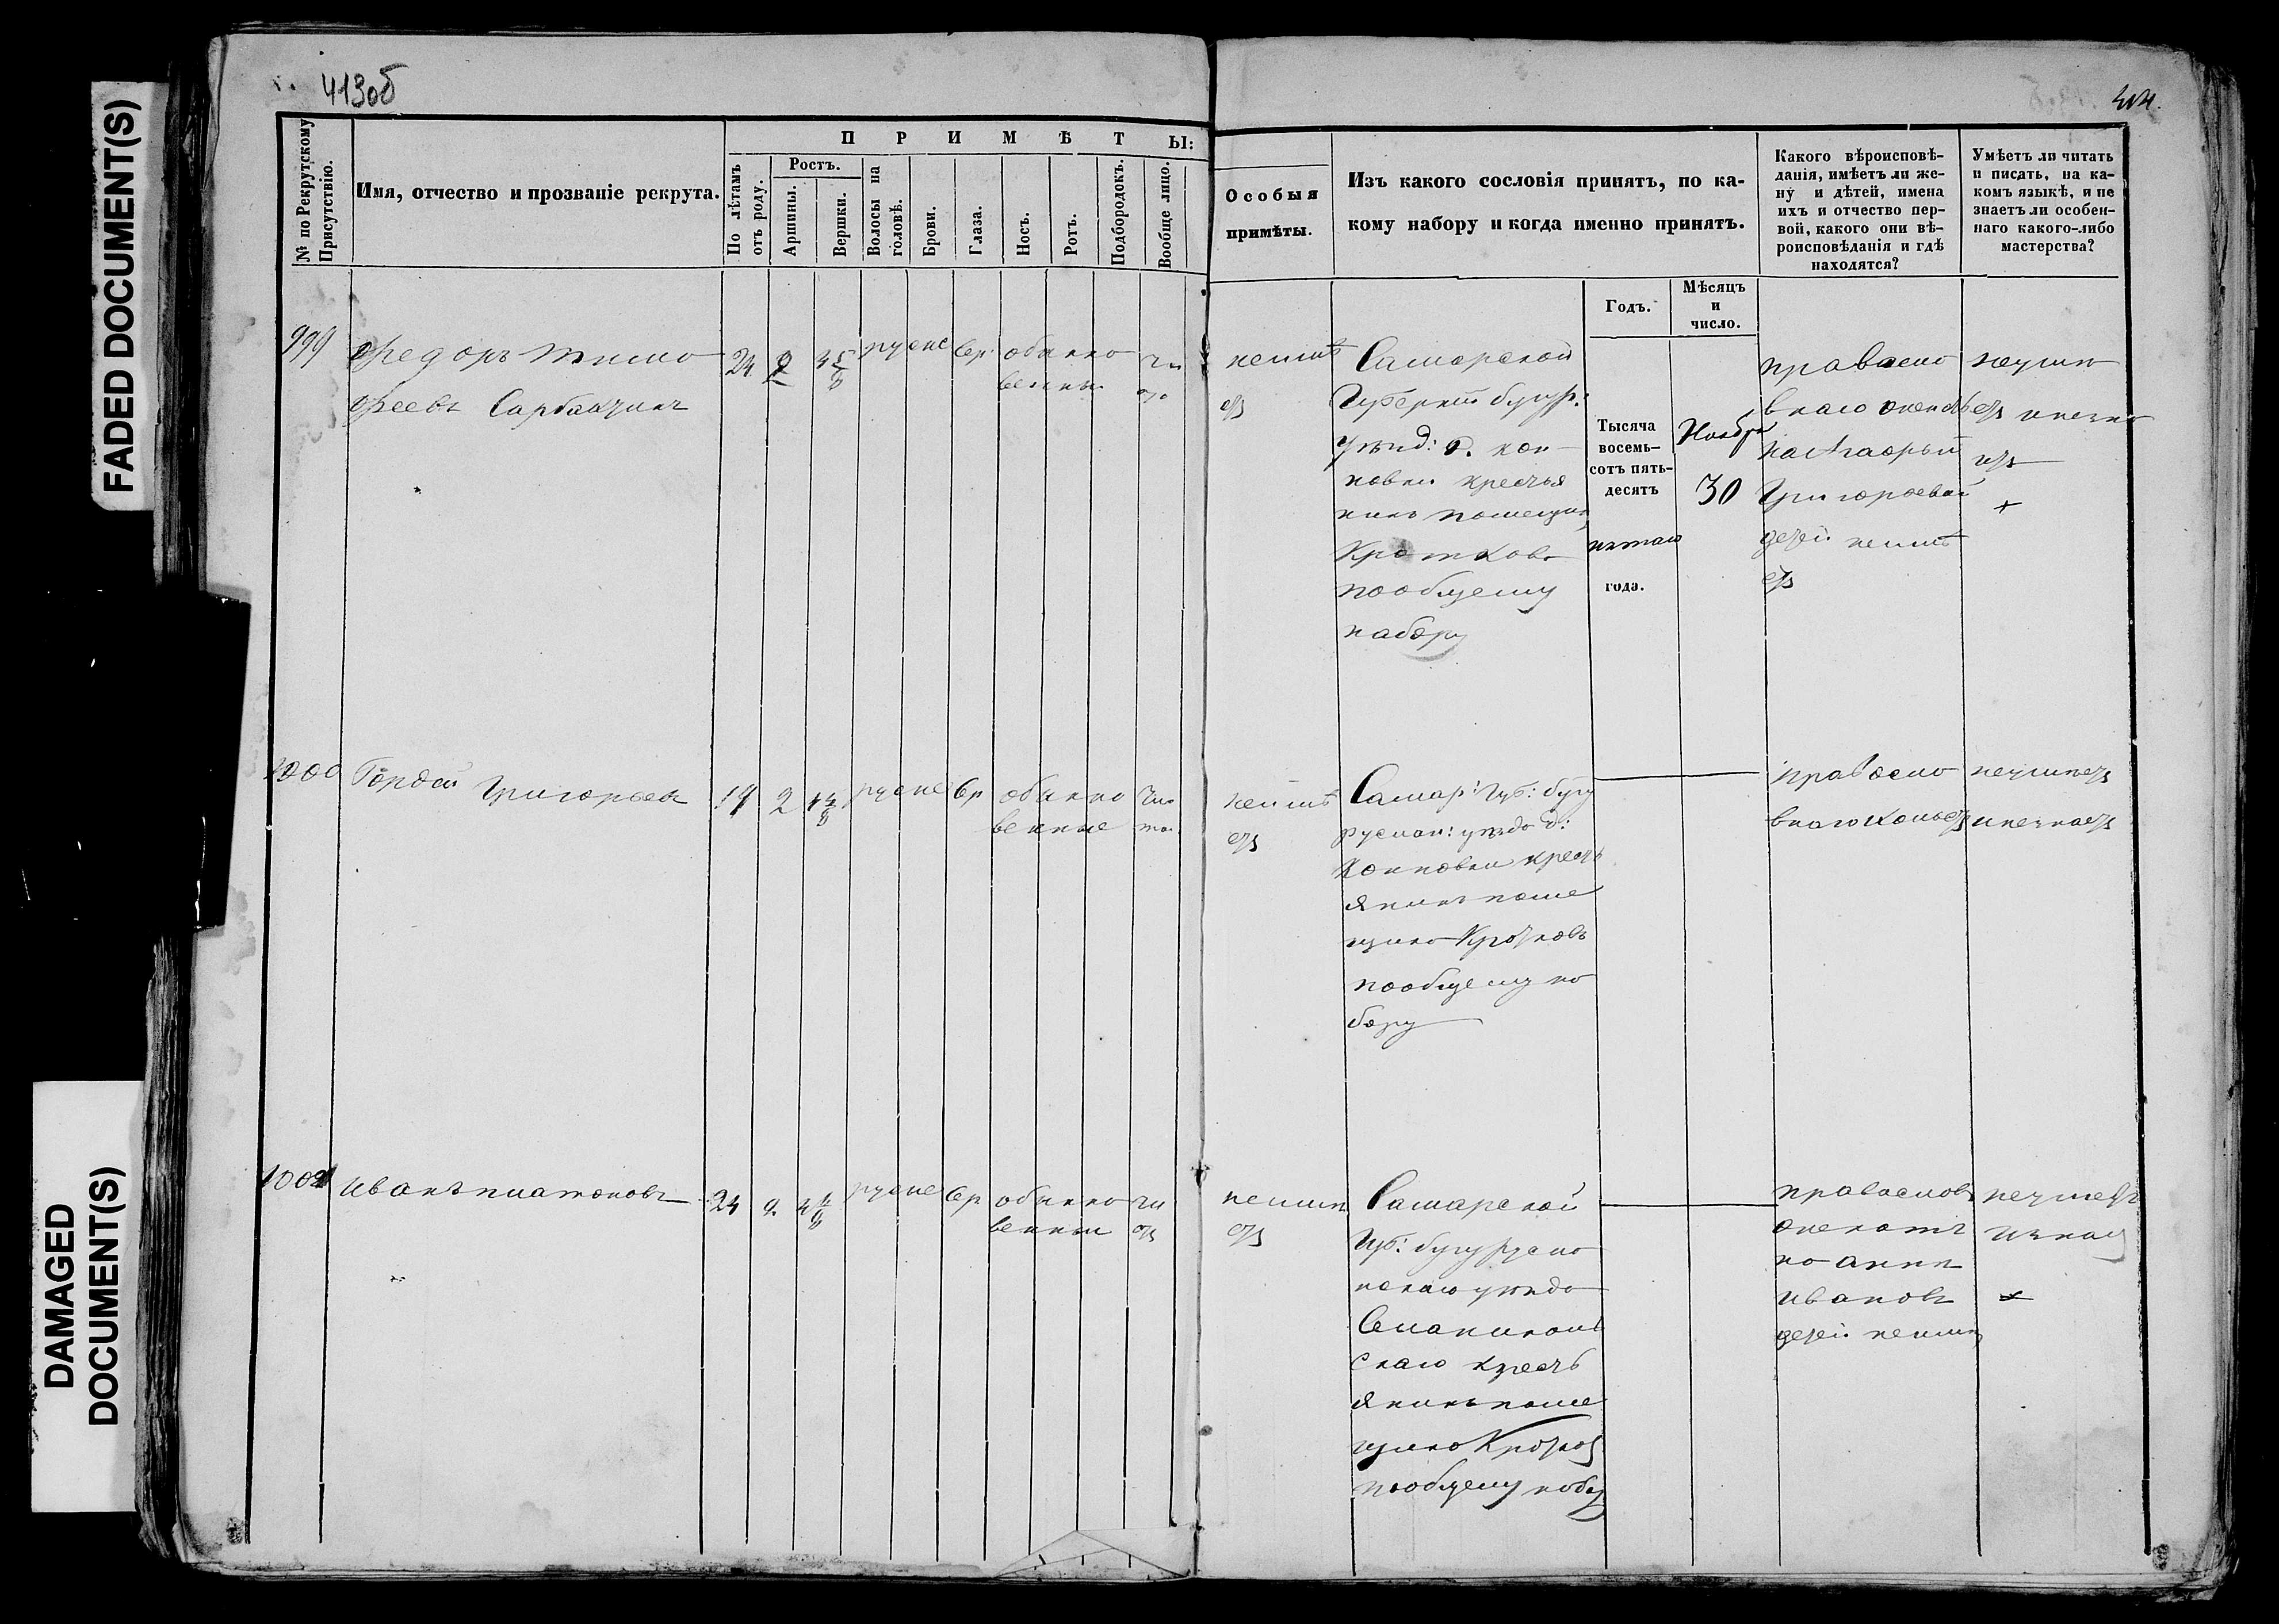 FADED DOCUMENT(S)
DAMAGED
DOCUMENT(S)
413об
414.
№ по Рекрутскому
Присутствію.
Имя, отчество и прозваніе рекрута.
ПРИМѢТЫ:
По лѣтамъ
отъ роду.
Ростъ.
Аршины.
Вершки.
Волосы на
головѣ.
Брови.
Глаза.
Носъ.
Ротъ.
Подбородокъ.
Вообще лицо.
Особыя
примѣты.
Изъ какого сословія принятъ, по ка-
кому набору и когда именно принятъ.
Годъ.
Мѣсяцъ
и
число.
Какого вѣроисповѣ-
данія, имѣетъ ли же-
ну и дѣтей, имена
ихъ и отчество пер-
вой, какого они вѣ-
роисповѣданія и гдѣ
находятся?
Умѣетъ ли читать
и писать, на ка-
комъ языкѣ, и не
знаетъ ли особен-
наго какого-либо
мастерства?
999
Федоръ Тимо
феевъ
24
2
русые
сер
обыкно
венны
неимѣ
етъ
Самарской
Губерніи бугур:
уѣзд: д. кон
новки крестья
нинъ помещик
Кротков
пообщему
набору
Тысяча
восемь-
сотъ пять-
десятъ
пятаго
года.
Ноября
30
православ
наго женатъ
Григорьевой
детей неимѣ
етъ
неумѣ
етъ инезна
етъ
1000
Гордей Григорьевъ
19
2
русые
сер
обыкно
венные
чис
то
неимѣ
етъ
Самар: Губ: бугу
руслан: уѣзда д:
Конновки кресть
янинъ поме
щика Кротковъ
пообщему на
бору
правосла
внаго холостъ
неумѣетъ
инезнаетъ
1001
Иванъ Платоновъ
24
2
русые
сер
обыкно
венны
неимѣ
етъ
Самарской
Губ: бугурусла
нскаго уѣзда
скаго кресть
янинъ поме
щика Кротков
пообщему набо
православ
женатъ
на Аннѣ
Ивановѣ
детей неимѣ
неумѣетъ